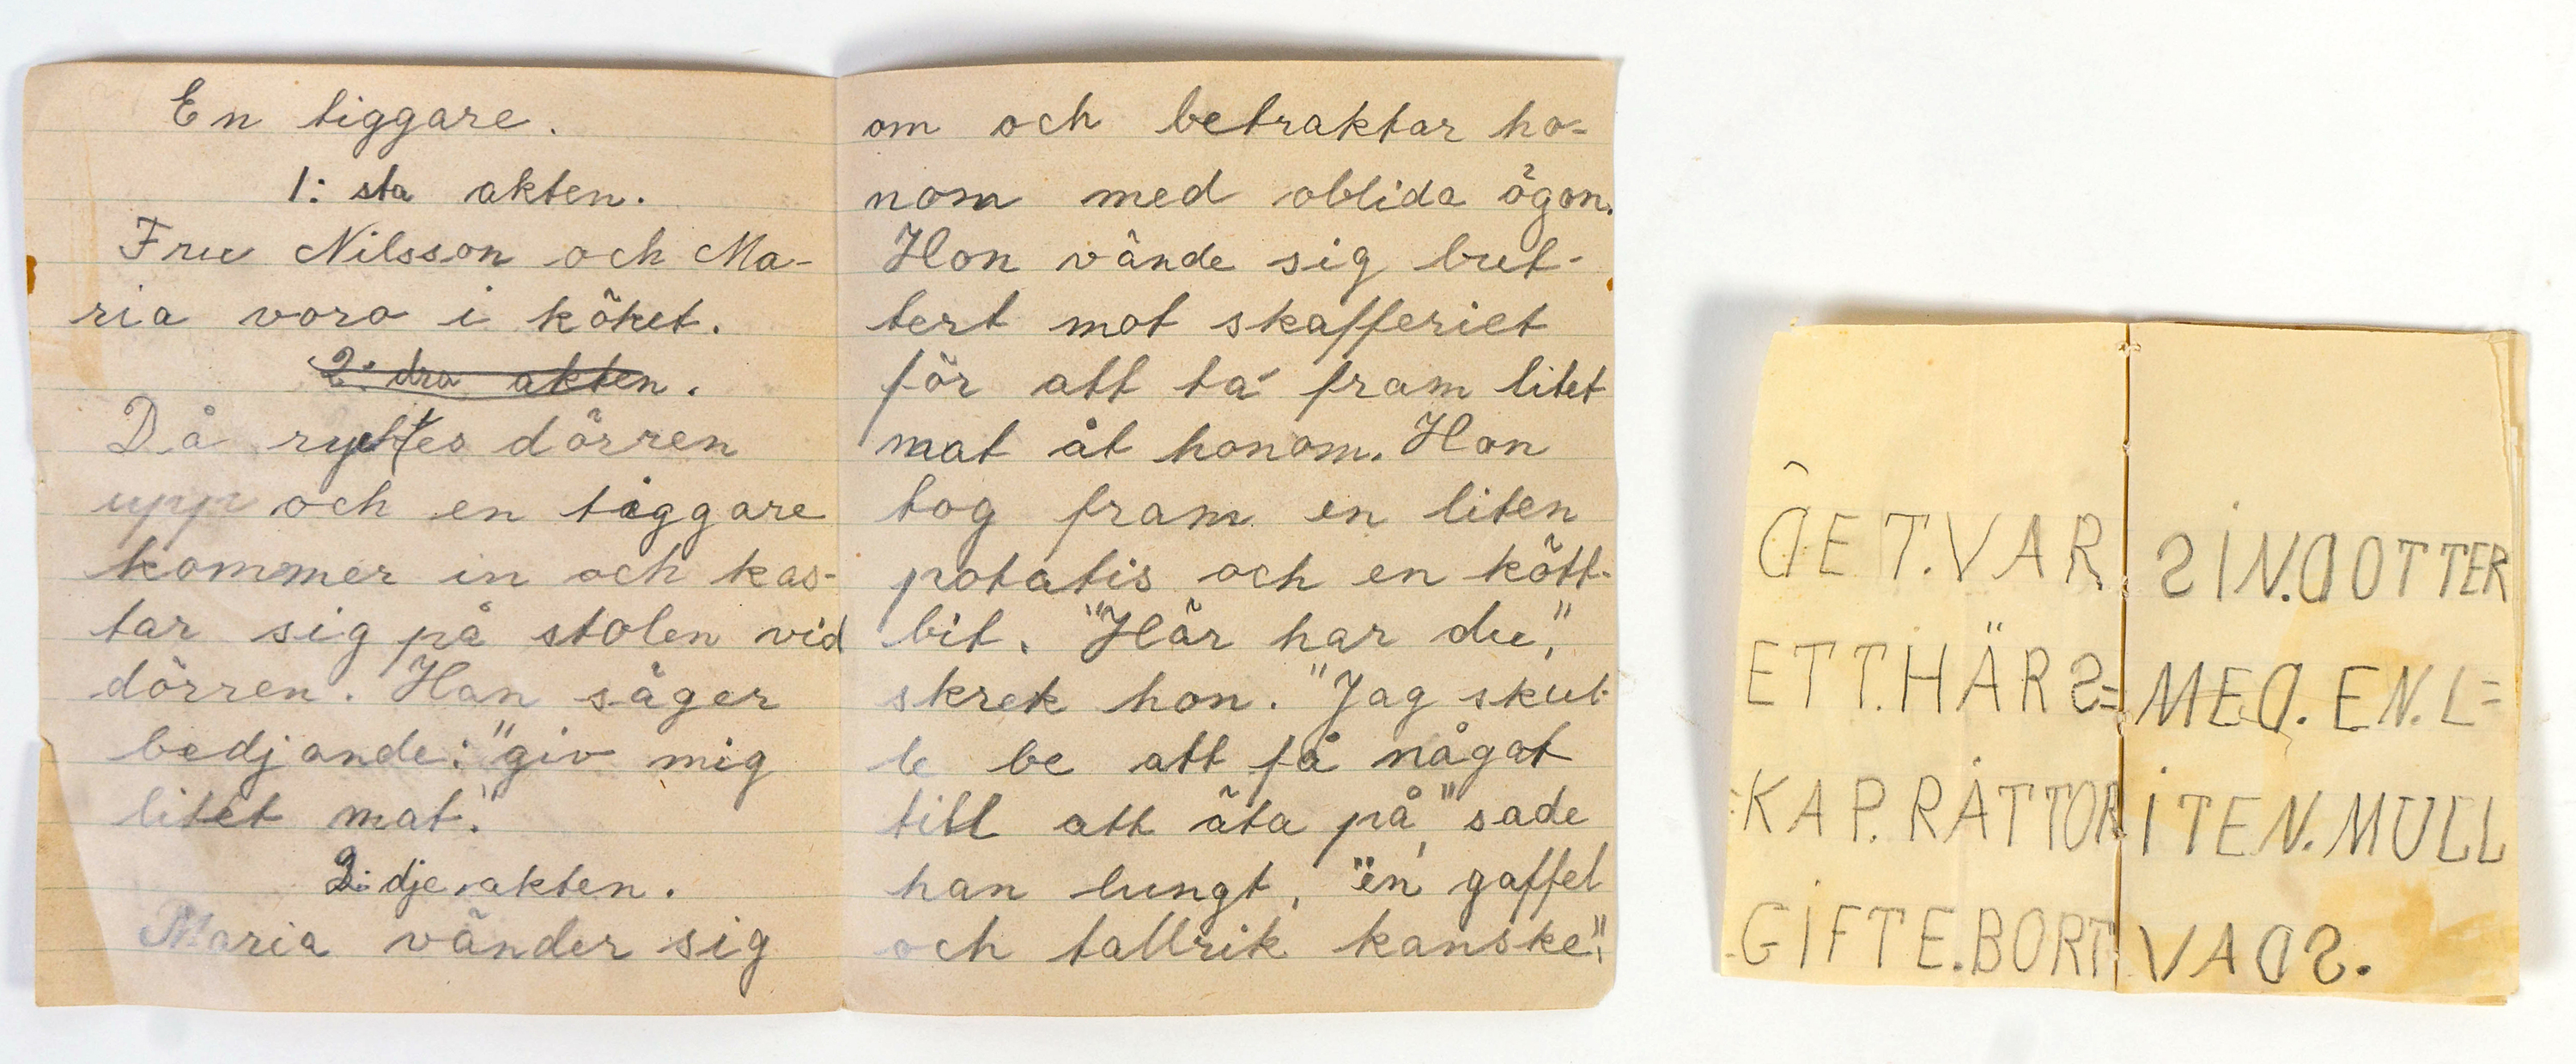 En tiggare.
1: sta akten.
Fru Nilsson och Ma-
ria voro i köket.
2: dra akten.
Då ryktes dörren
upp och en tiggare
kommer in och kas-
tar sig på stolen vid
dörren. Han säger
bedjande: "giv mig
litet mat."
3: dje akten.
Maria vänder sig
om och betraktar ho-
nom med oblida ögon.
Hon vände sig but-
tert mot skafferiet
för att ta fram litet
mat åt honom. Hon
tog fram en liten
potatis och en kött-
bit. "Här har du",
skrek hon. "Jag skul-
le be att få något
till att äta på", sade
han lungt, "en gaffel
och tallrik kanske".
DET.VAR
ETT.HÄRS=
=KAP.RÅTTOR
GIFTE.BORT
SIN.DOTTER
MED.EN.L=
ITEN.MULL
VADS.